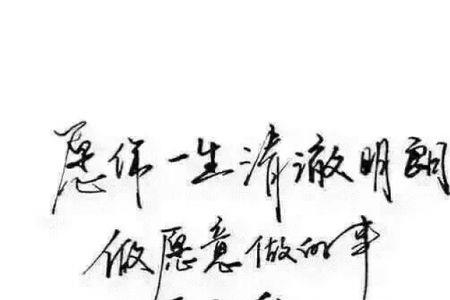 愿你一生清澈明朗
做愿意做的事